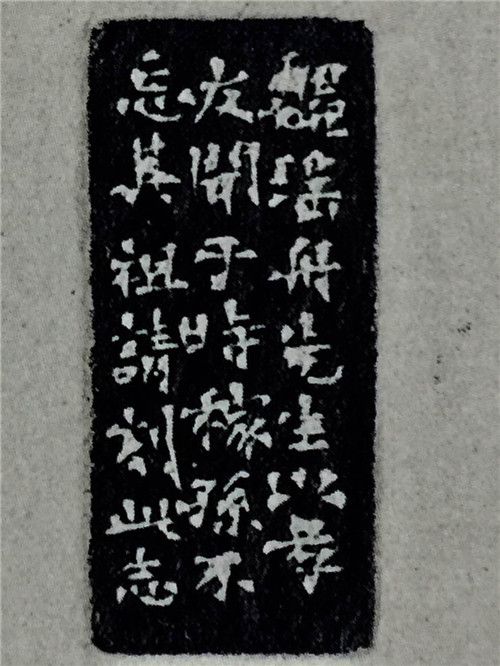 舟先生以孝
友聞于時稼孫不
忘其祖請刻此志